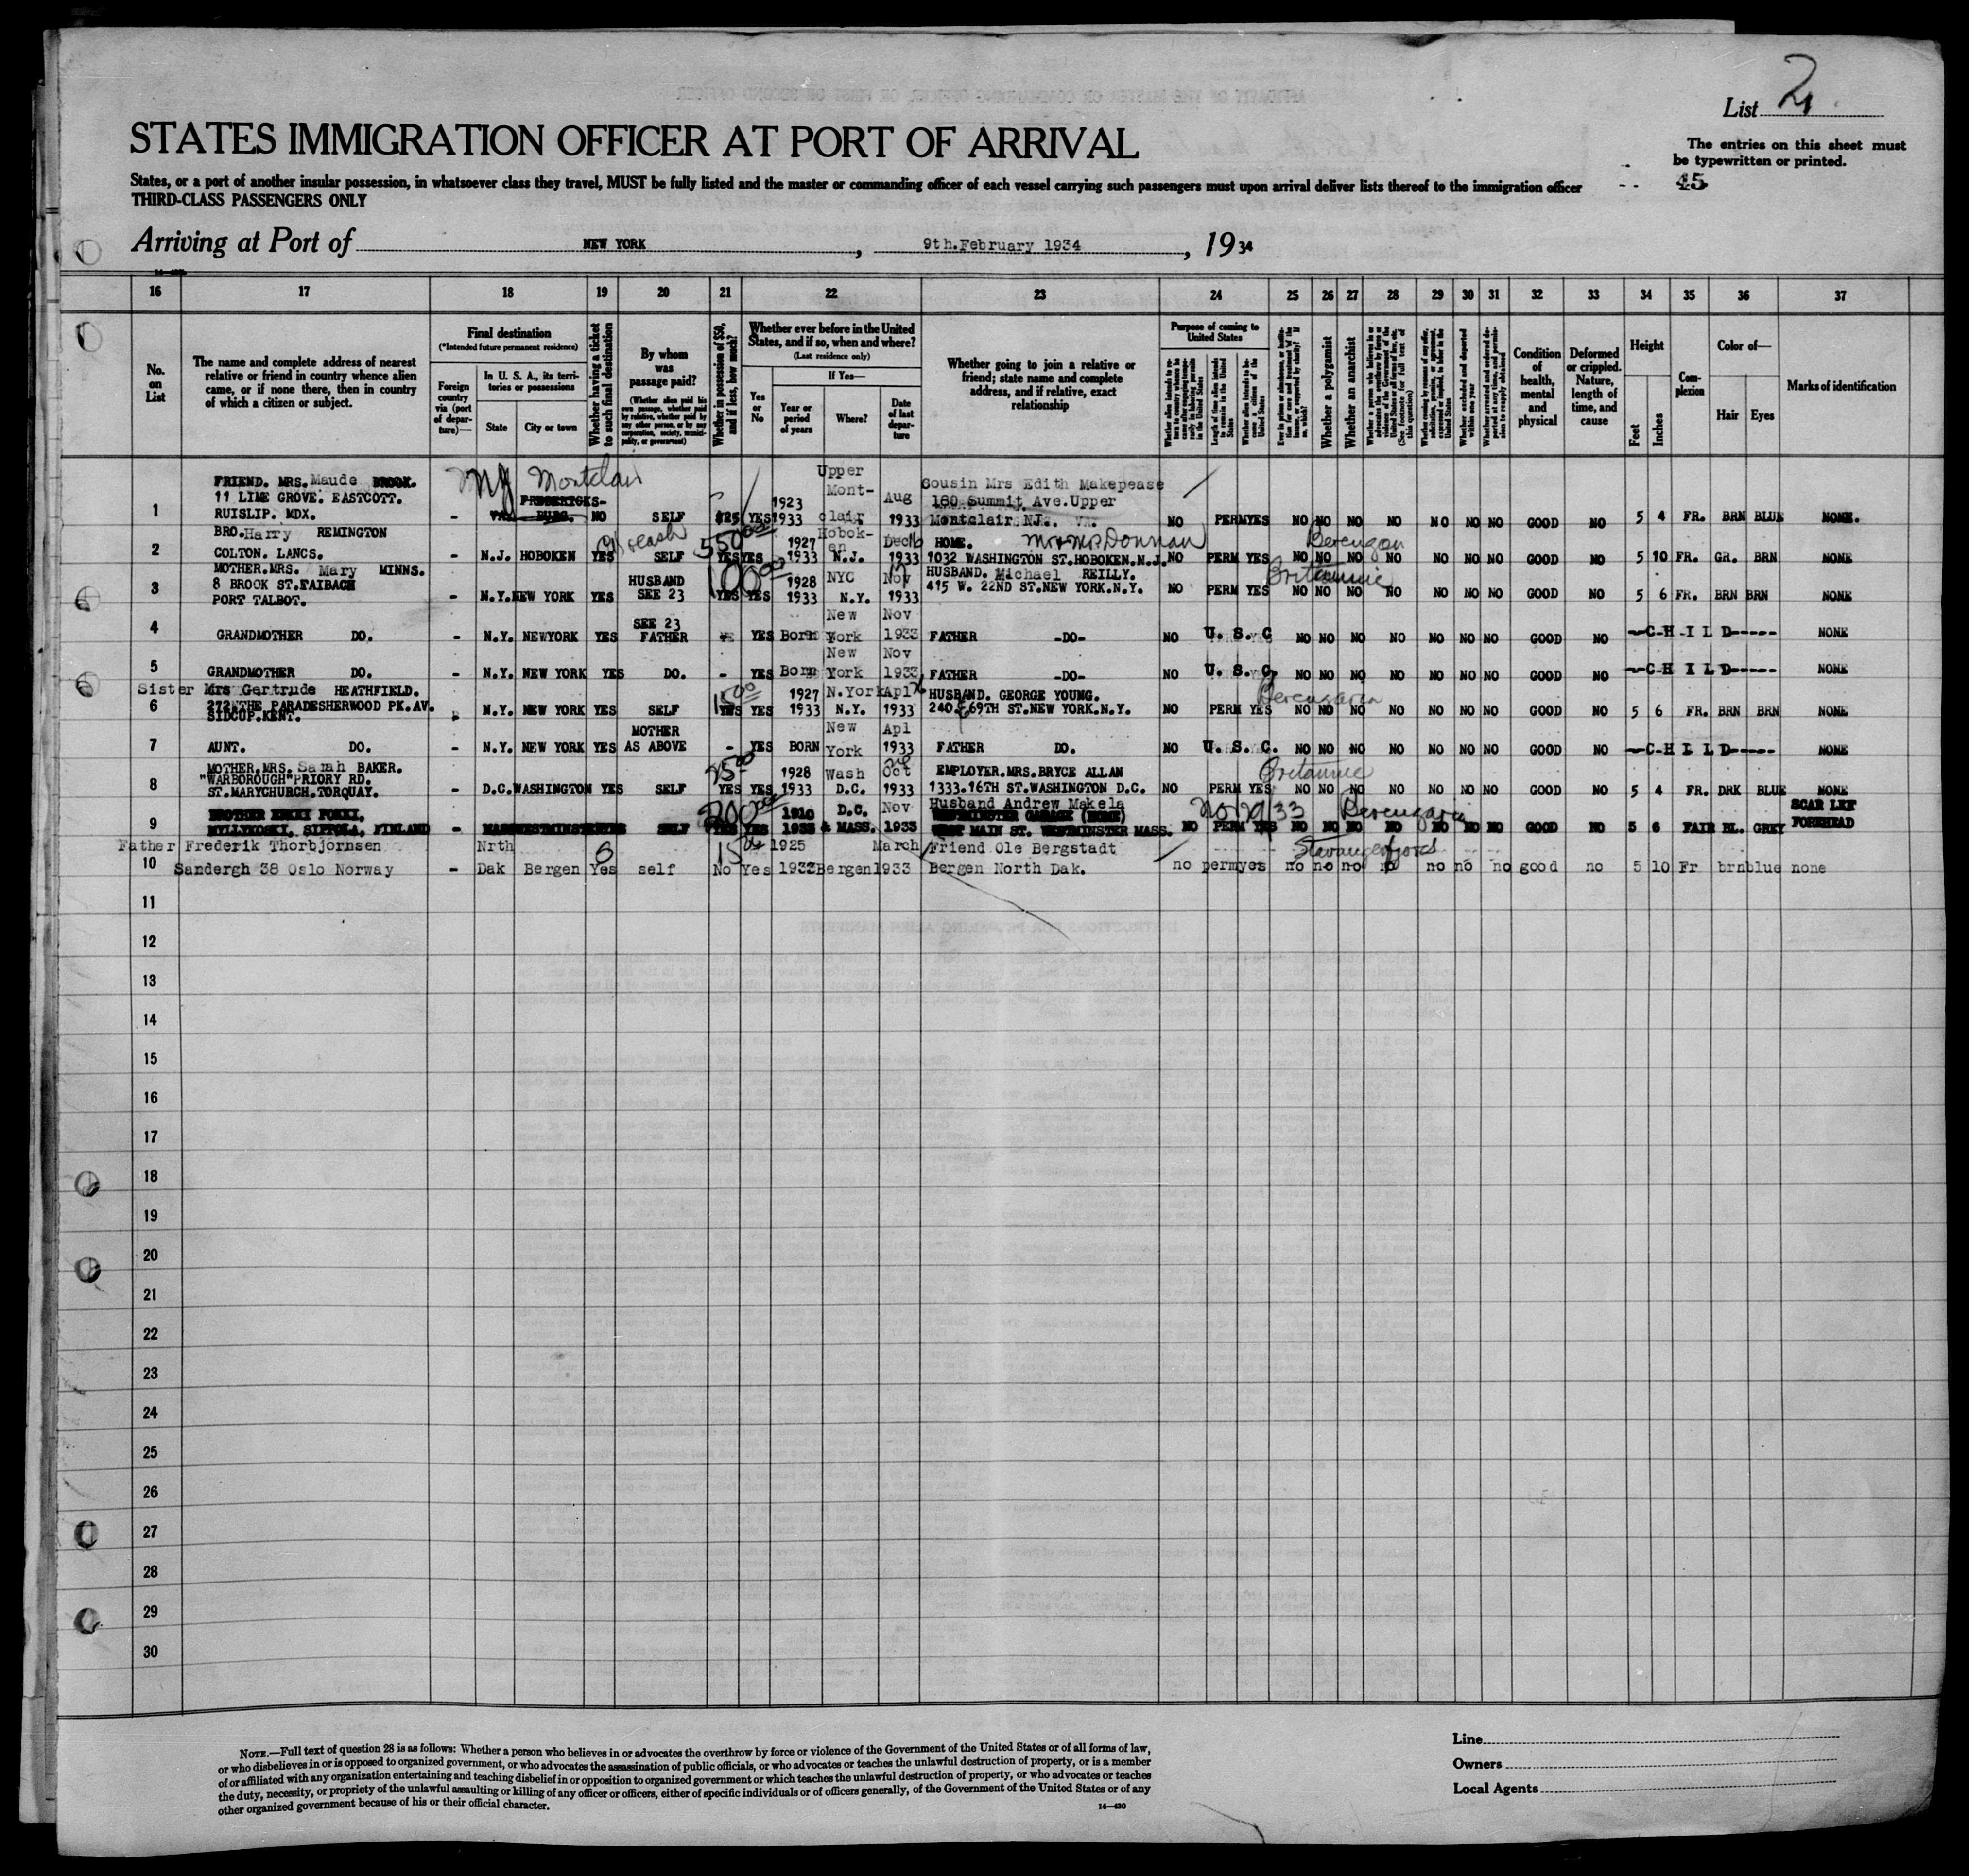 List 2
STATES IMMIGRATION OFFICER AT PORT OF ARRIVAL
The entries on this sheet must
be typewritten or printed.
States, or a port of another insular possession, in whatsoever class they travel, MUST be fully listed and the master or commanding officer of each vessel carrying such passengers must upon arrival deliver lists thereof to the immigration officer
45
THIRD-CLASS PASSENGERS ONLY
Arriving at Port of NEW YORK, 9th.February 1934, 1934
16 17 18 19 20 21 22 23 24 25 26 27 28 29 30 31 32 33 34 35 36 37
No. on List
The name and complete address of nearest relative or friend in country whence alien came, or if none there, then in country of which a citizen or subject.
Final destination
(*Intended future permanent residence)
Foreign country via (port of departure)—
In U. S. A., its territories or possessions
State
City or town
Whether having a ticket to such final destination
By whom was passage paid?
(Whether alien paid his own passage, whether paid by relative, whether paid by any other person, or by any corporation, society, municipality, or government)
Whether in possession of $50, and if less, how much?
Whether ever before in the United States, and if so, when and where?
(Last residence only)
Yes or No
If Yes—
Year or period of years
Where?
Date of last departure
Whether going to join a relative or friend; state name and complete address, and if relative, exact relationship
Purpose of coming to United States
Length of time alien intends to remain in the United States
Whether alien intends to become a citizen of the United States
Whether a polygamist
Whether an anarchist
Condition of health, mental and physical
Deformed or crippled. Nature, length of time, and cause
Height
Feet
Inches
Complexion
Color of—
Hair
Eyes
Marks of identification
NJ Montclair
1 FRIEND. MRS. Maude BROOK.
11 LIME GROVE. EASTCOTT.
RUISLIP. MDX. - VA. FREDERICKS-BURG. NO SELF $25 YES 1923 1933 Upper Mont-clair Aug 1933 Cousin Mrs Edith Makepease
180 Summit Ave.Upper
Montclair NJ. NO PERM YES NO NO NO NO NO NO NO GOOD NO 5 4 FR. BRN BLUE NONE.
2 BRO. Harry REMINGTON
COLTON. LANCS. - N.J. HOBOKEN YES SELF 550 00 YES YES 1927 1933 Hobok-en N.J. Dec 1933 HOME. Mr & Mrs Donnan
1032 WASHINGTON ST.HOBOKEN.N.J. NO PERM YES NO NO NO NO NO NO NO GOOD NO 5 10 FR. GR. BRN NONE
3 MOTHER.MRS. Mary MINNS.
8 BROOK ST.TAIBACH
PORT TALBOT. - N.Y. NEW YORK YES HUSBAND SEE 23 100 00 YES YES 1928 1933 NYC N.Y. Nov 1933 HUSBAND. Michael REILLY.
415 W. 22ND ST.NEW YORK.N.Y. NO PERM YES Britannic NO NO NO NO NO NO NO GOOD NO 5 6 FR. BRN BRN NONE
4 GRANDMOTHER DO. - N.Y. NEWYORK YES SEE 23 FATHER YES Born New York Nov 1933 FATHER -DO- NO U. S. C NO NO NO NO NO NO NO GOOD NO -C-H-I L D----- NONE
5 GRANDMOTHER DO. - N.Y. NEW YORK YES DO. - YES Born New York Nov 1933 FATHER -DO- NO U. S. C. NO NO NO NO NO NO NO GOOD NO -C-H I L D----- NONE
6 Sister Mrs Gertrude HEATHFIELD.
272 THE PARADE SHERWOOD PK.AV.
SIDCUP.KENT. N.Y. NEW YORK YES SELF 15 00 YES YES 1927 1933 N.York N.Y. Apl 1933 HUSBAND. GEORGE YOUNG.
240 E 69TH ST.NEW YORK.N.Y. NO PERM YES Berengaria NO NO NO NO NO NO NO GOOD NO 5 6 FR. BRN BRN NONE
7 AUNT. DO. - N.Y. NEW YORK YES MOTHER AS ABOVE - YES BORN New York Apl 1933 FATHER DO. NO U. S. C. NO NO NO NO NO NO NO GOOD NO -C-H I L D----- NONE
8 MOTHER.MRS. Sarah BAKER.
"WARBOROUGH" PRIORY RD.
ST.MARYCHURCH.TORQUAY. - D.C. WASHINGTON YES SELF 25 00 YES YES 1928 1933 Wash D.C. Oct 1933 EMPLOYER.MRS.BRYCE ALLAN
1333.16TH ST.WASHINGTON D.C. NO PERM YES Britannic NO NO NO NO NO NO NO GOOD NO 5 4 FR. DRK BLUE NONE
9 BROTHER
MYLLYKOSKI, SIPPOLA, FINLAND - MASS WESTMINSTER YES SELF 200 00 YES YES 1910 1933 D.C. & MASS. Nov 1933 Husband Andrew Makela
WESTMINSTER GARAGE (HOME)
WEST MAIN ST. WESTMINSTER MASS. Nov 29/33 Berengaria NO PERM YES NO NO NO NO NO NO NO GOOD NO 5 6 FAIR BL. GREY SCAR LEF FOREHEAD
10 Father Frederik Thorbjornsen
Sandergh 38 Oslo Norway - Nrth Dak Bergen Yes self 15 00 No Yes 1925 1933 Bergen March 1933 Friend Ole Bergstadt
Bergen North Dak. Stavangerfjord no perm yes no no no no no no no good no 5 10 Fr brn blue none
11
12
13
14
15
16
17
18
19
20
21
22
23
24
25
26
27
28
29
30
NOTE.—Full text of question 28 is as follows: Whether a person who believes in or advocates the overthrow by force or violence of the Government of the United States or of all forms of law,
or who disbelieves in or is opposed to organized government, or who advocates the assassination of public officials, or who advocates or teaches the unlawful destruction of property, or is a member
of or affiliated with any organization entertaining and teaching disbelief in or opposition to organized government or which teaches the unlawful destruction of property, or who advocates or teaches
the duty, necessity, or propriety of the unlawful assaulting or killing of any officer or officers, either of specific individuals or of officers generally, of the Government of the United States or of any
other organized government because of his or their official character.
14—430
Line
Owners
Local Agents